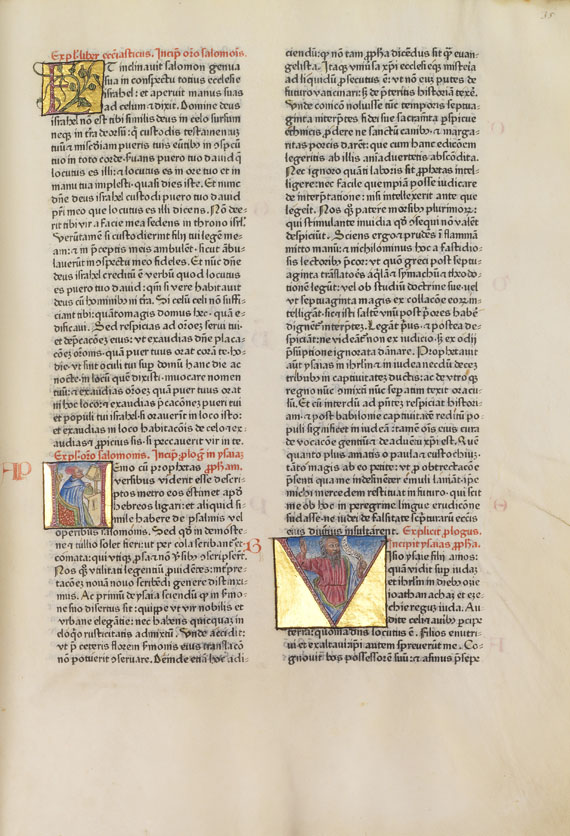 Expl. liber eccĩasticus. Incip̃ orõ salomõis.
ET inclinauit salomon genua
sua in conspectu totius ecclesie
israhel: et aperuit manus suas
ad celum ⁊ dixit. Domine deus
israhel nõ est tibi similis deus in celo sursum
neq; in terra deorsũ: qui custodis
tuo in toto corde
locutus es illi: ⁊ locutus es in ore tuo et in
manu tua implesti: quasi dies iste. Et nunc
dñe deus israhel custodi puero tuo dauid
patri meo que locutus es illi dicens. Nõ
tibi vir a facie mea sedens in throno
Verũtamẽ si custodierint filij tui legẽ
am: ⁊ in p̃ceptis meis ambulẽt: sicut
lauerũt in cõspectu meo fideles. Et nũc dñe
deus israhel creditũ ẽ verbũ quod locutus
es puero tuo dauid: qm̃ si vere habitauit
deus cũ hominibꝰ in terra. Si celũ celi nõ suffi
ciant tibi: quãtomagis domus hec: quã e
dificaui. Sed respicias ad orõez serui tui:
et dep̃cacõez eius: vt exaudias dñe
cacõez: quam puer tuus orat corã te ho
die: vt sint oculi tui sup domũ hanc die ac
nocte: in locũ quẽ dixisti: inuocare nomen
tuũ: ⁊ exaudias orõez quaz puer tuus orat
in hoc loco: ⁊ exaudias p̃cacõnez pueri tui
et populi tui israhel: si orauerit in loco isto:
et exaudias in loco habitacõis de celo: ⁊ ex
audias ⁊ propicius sis: si peccauerit vir in te.
Expl. orõ salomonis. Incip̃ plog̃ in ysaiaz
NEmo cũ prophetas prophetam.
versibus viderit esse descri
ptos metro eos estimet apud
hebreos ligari: et aliquid si
mile habere de psalmis vel
operibus salomonis. Sed quod in demoste
ne ⁊ tullio solet fieri: vt per cola scribantur et
comata: qui vtiq; prosa ⁊ nõ versibꝰ cõscripserũt.
Nos q; vtilitati legentiũ puidẽtes: interpre
tacõez nouã nouo scribẽdi genere distinxi
mus. Ac primũ de ysaia sciendũ q in sermo
ne suo disertus sit: quippe vt vir nobilis et
vrbane elegãtie: nec habens quicquaz in
eloqo rusticitatis admixtũ. Vnde accidit:
vt p̃ ceteris florem sermonis eius translacõ
nõ potuerit cõseruare. Deinde etiã hoc adi
ciendũ: q nõ tam propheta dicẽdus sit quam euan
gelista. Ita enim vniuersa xpi ecclesieq; misteria
ad liquidũ persecutus ẽ: vt nõ eũ putes de
futuro vaticinari: sed de preteritis historiã texere.
Vnde conicio noluisse tũc temporis septua
ginta interpretes fidei sue sacramẽta perspicue
ethnicis prodere: ne sanctũ canibꝰ ⁊ marga
ritas porcis darẽt: que cum hanc edicõem
legeritis ab illis animaduertetis abscõdita.
Nec ignoro quãti laboris sit prophetas intel
ligere: nec facile quempiã posse iudicare
de interpretatione: nisi intellexerit ante que
legerit. Nos q; patere morsibꝰ plurimorz:
qui stimulante inuidia quod cõsequi nõ valẽt
despiciũt. Sciens ergo ⁊ prudẽs in flammã
mitto manũ: ⁊ nichilominus hoc a fastidio
sis lectoribꝰ p̃cor: vt quo greci post septu
aginta translatores aquilã ⁊ symachũ ⁊ theodo
tionẽ legũt: vel ob studiũ doctrine sue: vel
vt septuaginta magis ex collacõe eorz in
telligãt: sic ⁊ isti saltẽ vnũ post priores habẽ
dignent̃ interpretez. Legãt priꝰ: ⁊ postea de
spiciãt: ne videãt nõ ex iudicio: sed ex odij
p̃sũptione ignorata dãnare. Prophetauit
aut ysaias in ihrl̃m ⁊ in iudea necdũ decez
tribubꝰ in captiuitatez ductis: ac de vtroq;
regno nũc cõmixtũ nũc separatim texit oracu
lũ. Et cũ interdũ ad p̃sentez respiciat histori
am: ⁊ post babilonie captiuitatẽ reditũ po
puli significet in iudeã: tamẽ omnis eius cura
de vocacõe gentiũ ⁊ de aduẽtu xpi est. Quẽ
quanto plus amatis o paula ⁊ eustochiuz:
tãto magis ab eo petite: vt p obtrectacõe
p̃senti qua me indefinenter emuli laniãt: ipe
michi mercedem restituat in futuro: qui scit
me ob hoc in peregrine lingue erudicõe
sudasse: ne iudei de falsitate scripturarũ ecclesijs
eius diutius insultarent. Explicit plogus.
Incipit ysaias propheta.
VIsio ysaie filij amos:
quã vidit sup iudaz
et ihrl̃m in diebꝰ ozie
ioathan achaz et eze
chie regũ iuda. Au
dite celi ⁊ auribꝰ percipe
terra: quoniã dñs locutus ẽ. Filios enutri
ui et exaltaui: ipi autem spreuerũt me. Co
gnouit bos possessorẽ suũ: ⁊ asinus p̃sepe